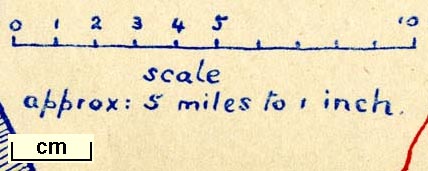 0 1 2 3 4 5 10
scale
approx: 5 miles to 1 inch.
cm